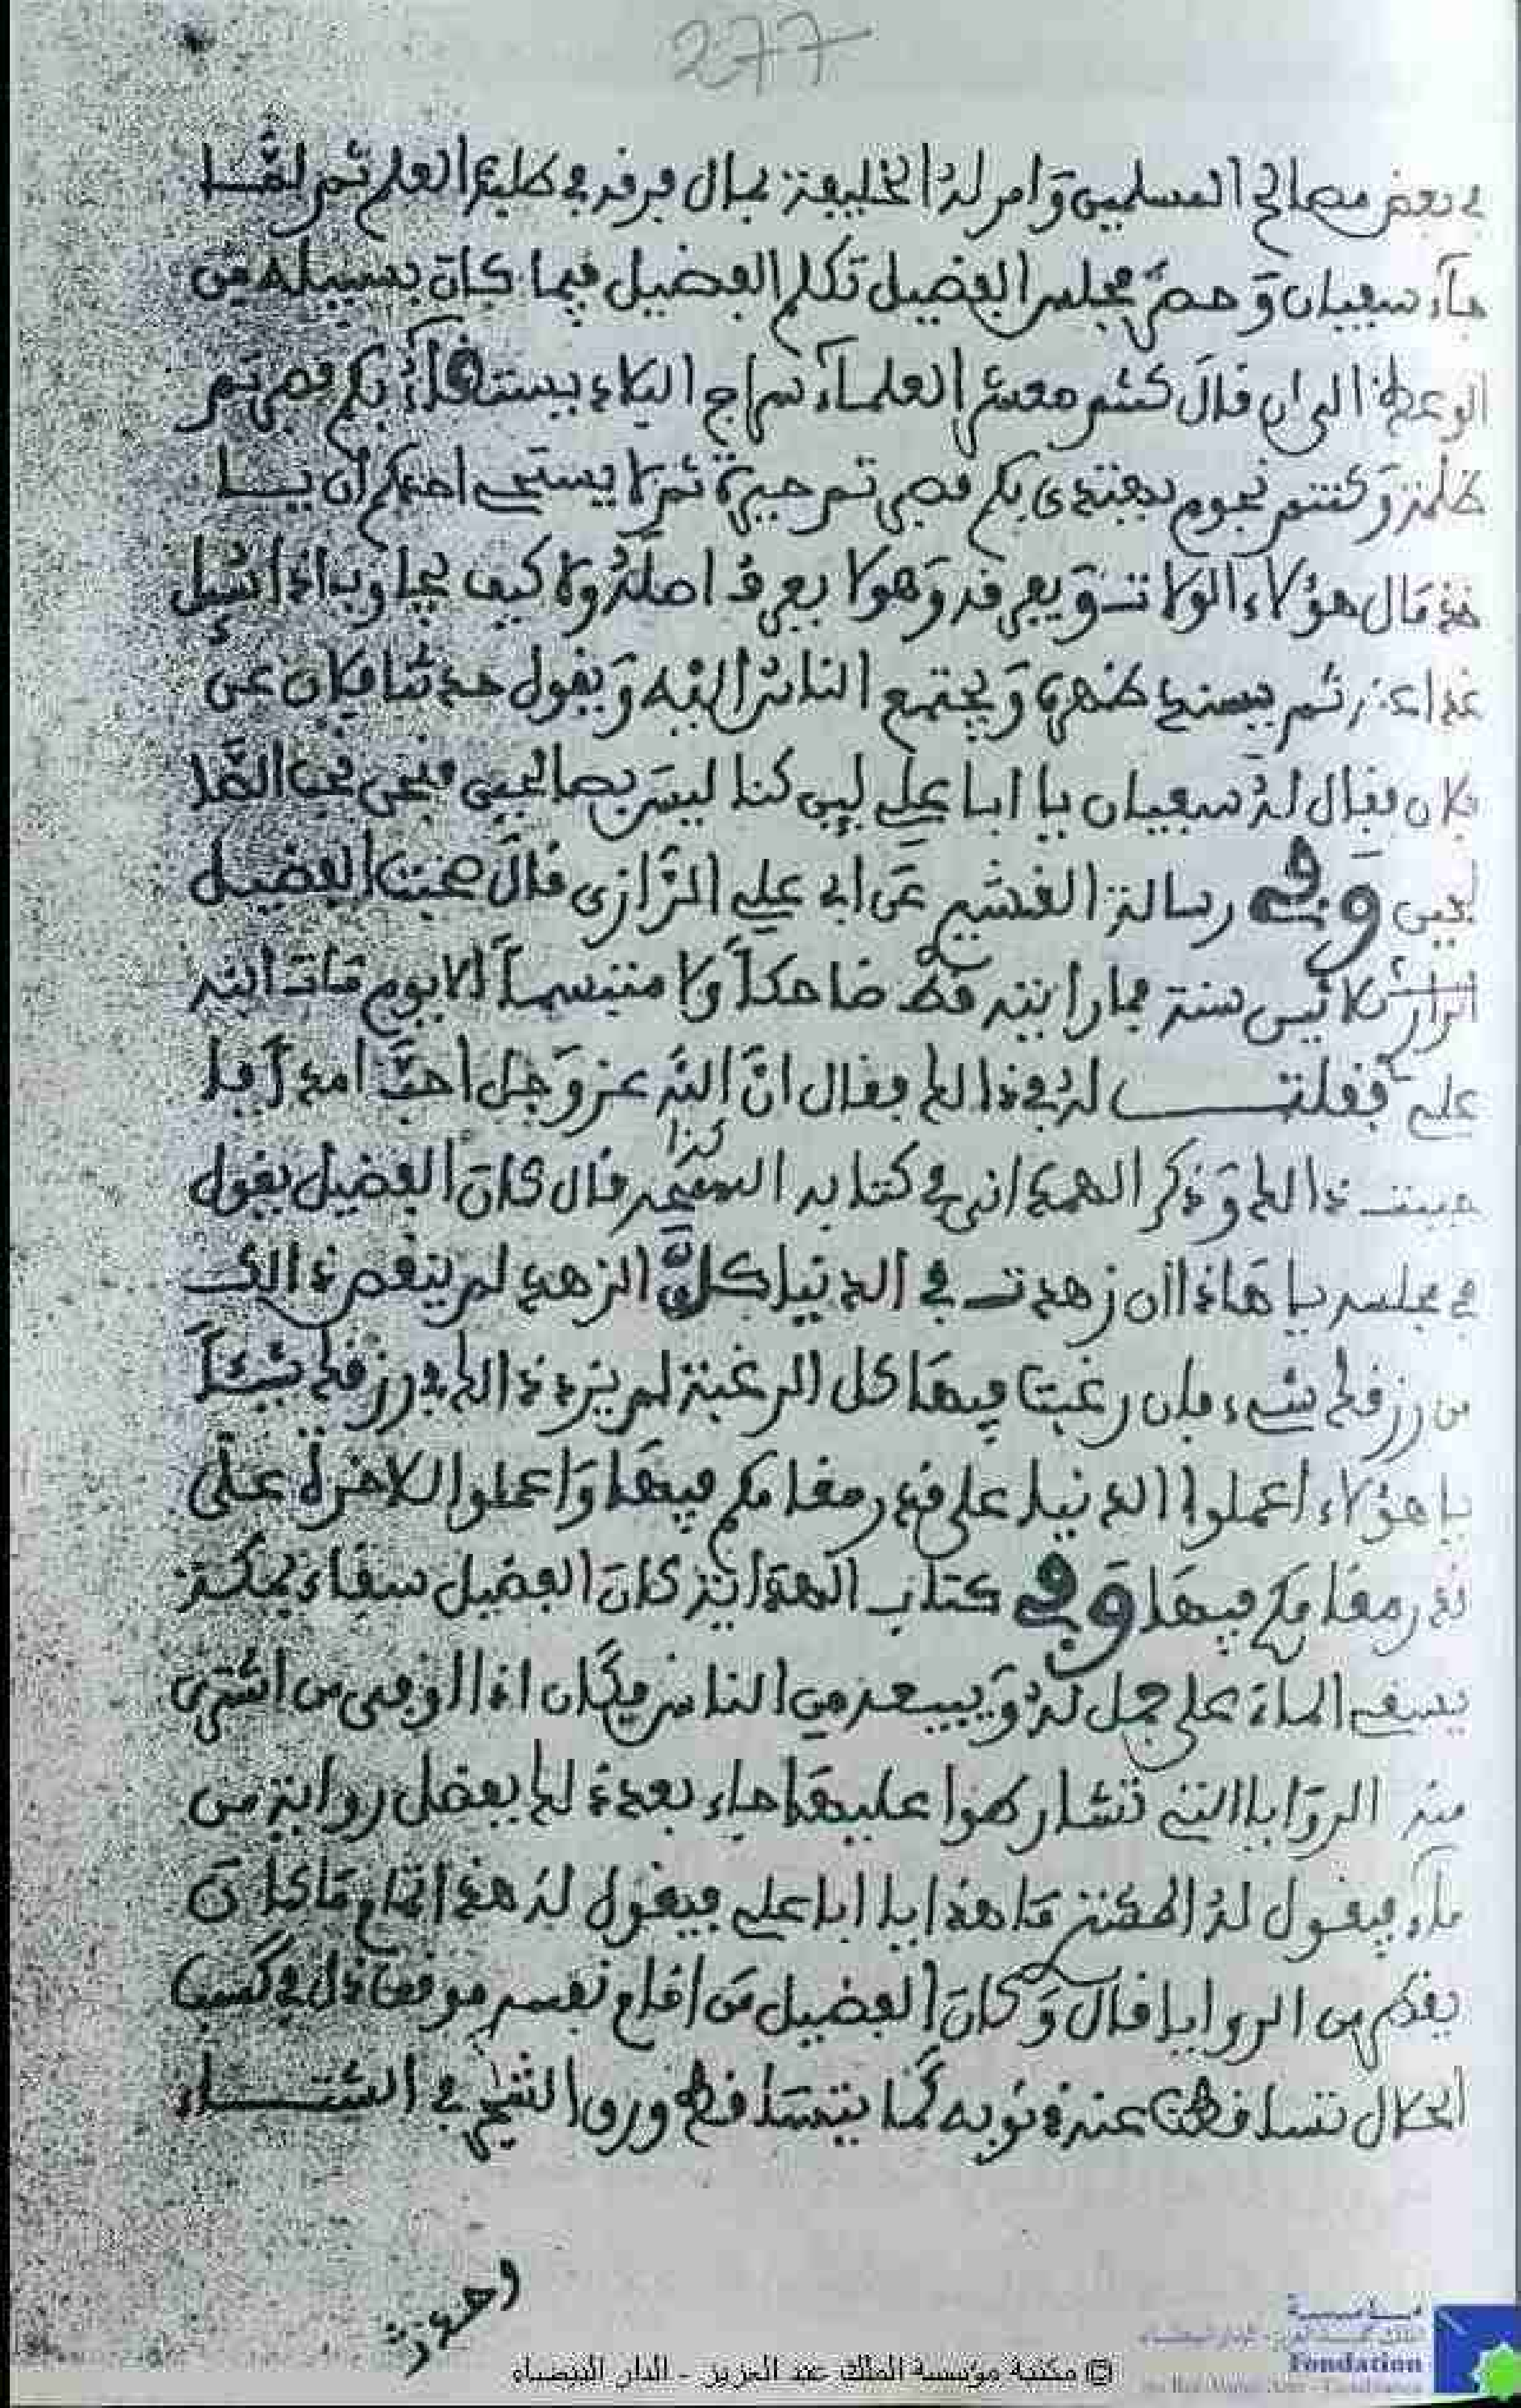 277
في بعض مصالح المسلمين وامر له الخليفة بمال فرفه في طلبة العلم ثم لما
جاء سفيان وحضر مجلس الفضيل تكلم الفضيل فيما كان بسبيله من
الوعظ الى ان قال كنتم معشر العلماء سراج البلاد يستضاء بكم فصرتم
ظلمة وكنتم نجوم يهتدى بكم فصرتم حيرة ثم لا يستحي احدكم ان يا
خذ مال هؤلاء الولاة ويعرفه وهو لا يعرف اصله ولا كيف يجاوب اذا سئل
غدا عنه ثم يسند ظهره ويجتمع الناس اليه ويقول حدثنا فلان عن
فلان فقال له سفيان يا ابا علي لين كنا ليس بصالحين فنحن نحب الصا
لحين وفي رسالة القشير عن ابي علي الرازي قال صحبت الفضيل
ثلاثين سنة فما رايته قط ضاحكا ولا متبسما الا يوم مات ابنه
علي فقلت له في ذالك فقال ان الله عز وجل احب امرا فا
حببت ذالك وذكر الهمداني في كتابه كذا قال كان الفضيل يقول
في مجلسه يا هاذا ان زهدت في الدنيا كل الزهد لم ينقص ذالك
من رزقك شيء وان رغبت فيها كل الرغبة لم يزد ذالك في رزقك شيئا
يا هؤلاء اعملوا الدنيا على قدر مقامكم فيها واعملوا للاخرة على
قدر مقامكم فيها وفي كتاب الهداية كان الفضيل سقاء بمكة
يسقي الماء على جمل له ويبيعه من الناس فكان اذا الزمن من اشترى
منه الروايا التي تشارطوا عليها جاء بعد ذلك بفضل رواية من
ماء فيقول له ما هذا يا ابا علي فيقول له هذا ما كان
يقطر من الروايا قال وكان الفضيل من اقام نفسه موقف ذل في كسب
الحلال تساقطت عنه ذنوبه كما يتساقط ورق الشجر في الشتاء
© مكتبة مؤسسة الملك عبد العزيز - الدار البيضاء
مؤسسة
Fondation